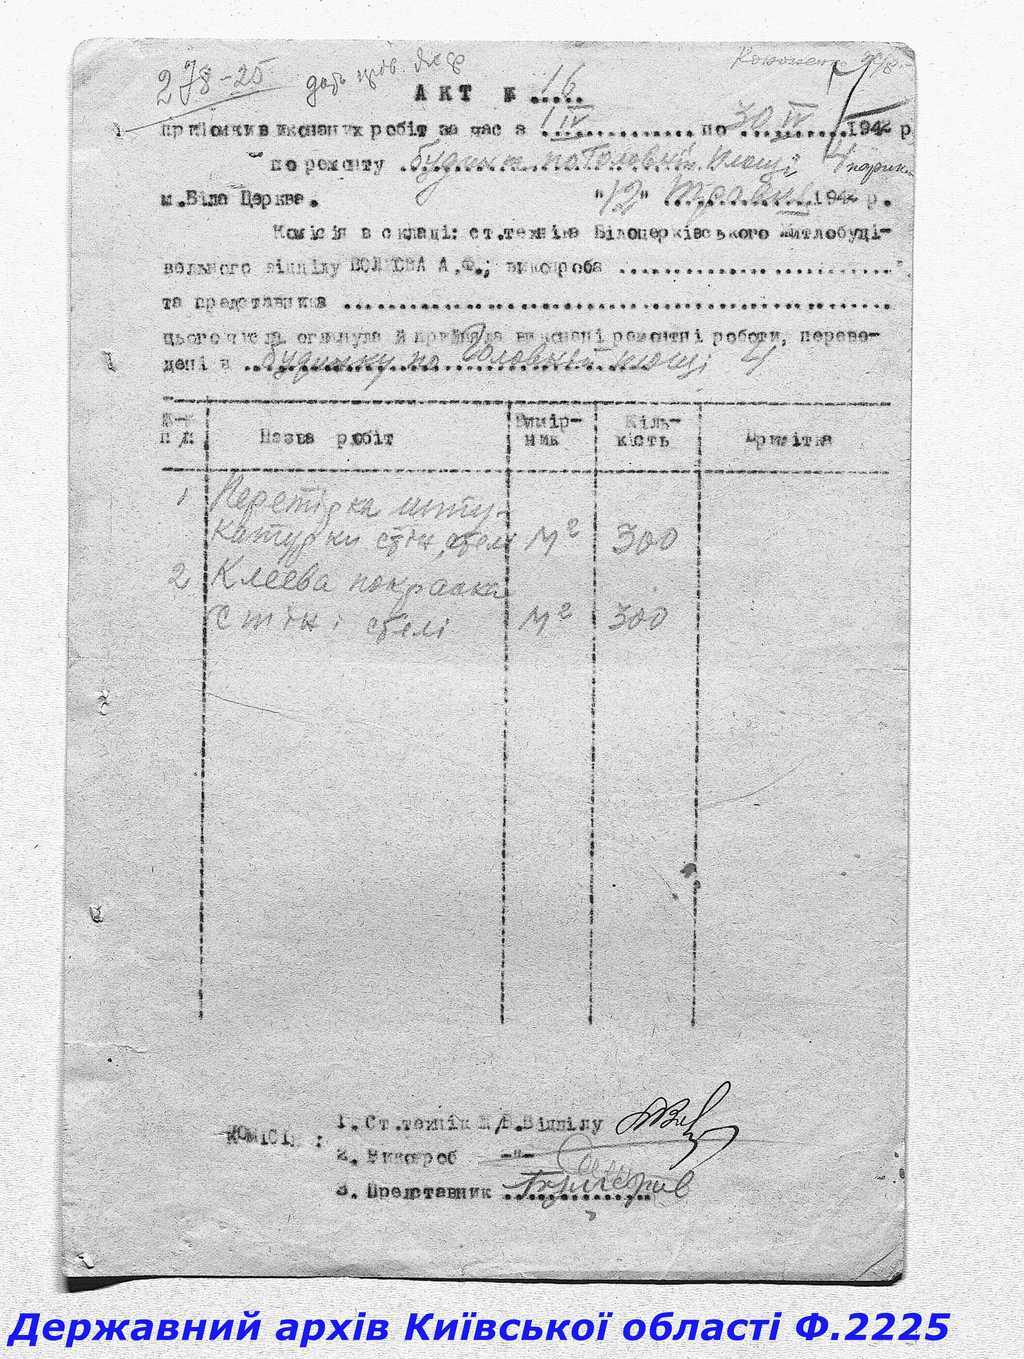 278-25
АКТ № 16
прийомки виконаних робіт за час з 1 IV по 30 IV 1942 р
по ремонту будинк. по Головній площі 4
м. Біла Церква. "12" Травня 1942 р.
Комісія в складі: ст.техніка Білоцерківського Житлобуді-
вельного відділу ВОЛКОВА А.Ф., виконроба ....................
та представника ....................
цього числа оглянула й прийняла виконані ремонтні роботи, переве-
дені в будинку по Головній площі 4
№-№ п/п Назва робіт Вимір-ник Кіль-кість Примітка
1 Перетірка шту-
катурки стін, стелі М² 300
2 Клеєва покраска
стін і стелі М² 300
КОМІСІЯ :
1. Ст.технік Ж/Б.Відділу
2. Виконроб -"-
3. Представник ....................
Державний архів Київської області Ф.2225